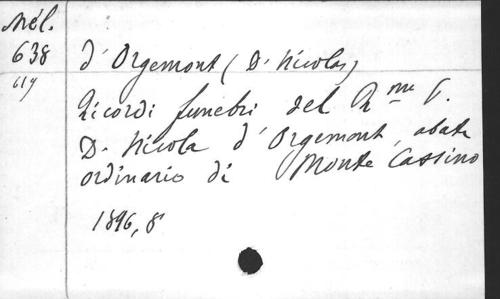 Mél.
638
619
d'Orgemont (D. Nicolas)
Ricordi funebri del Rme P.
D. Nicola d'Orgemont, abate
ordinario di Monte Cassino
1896, 8°